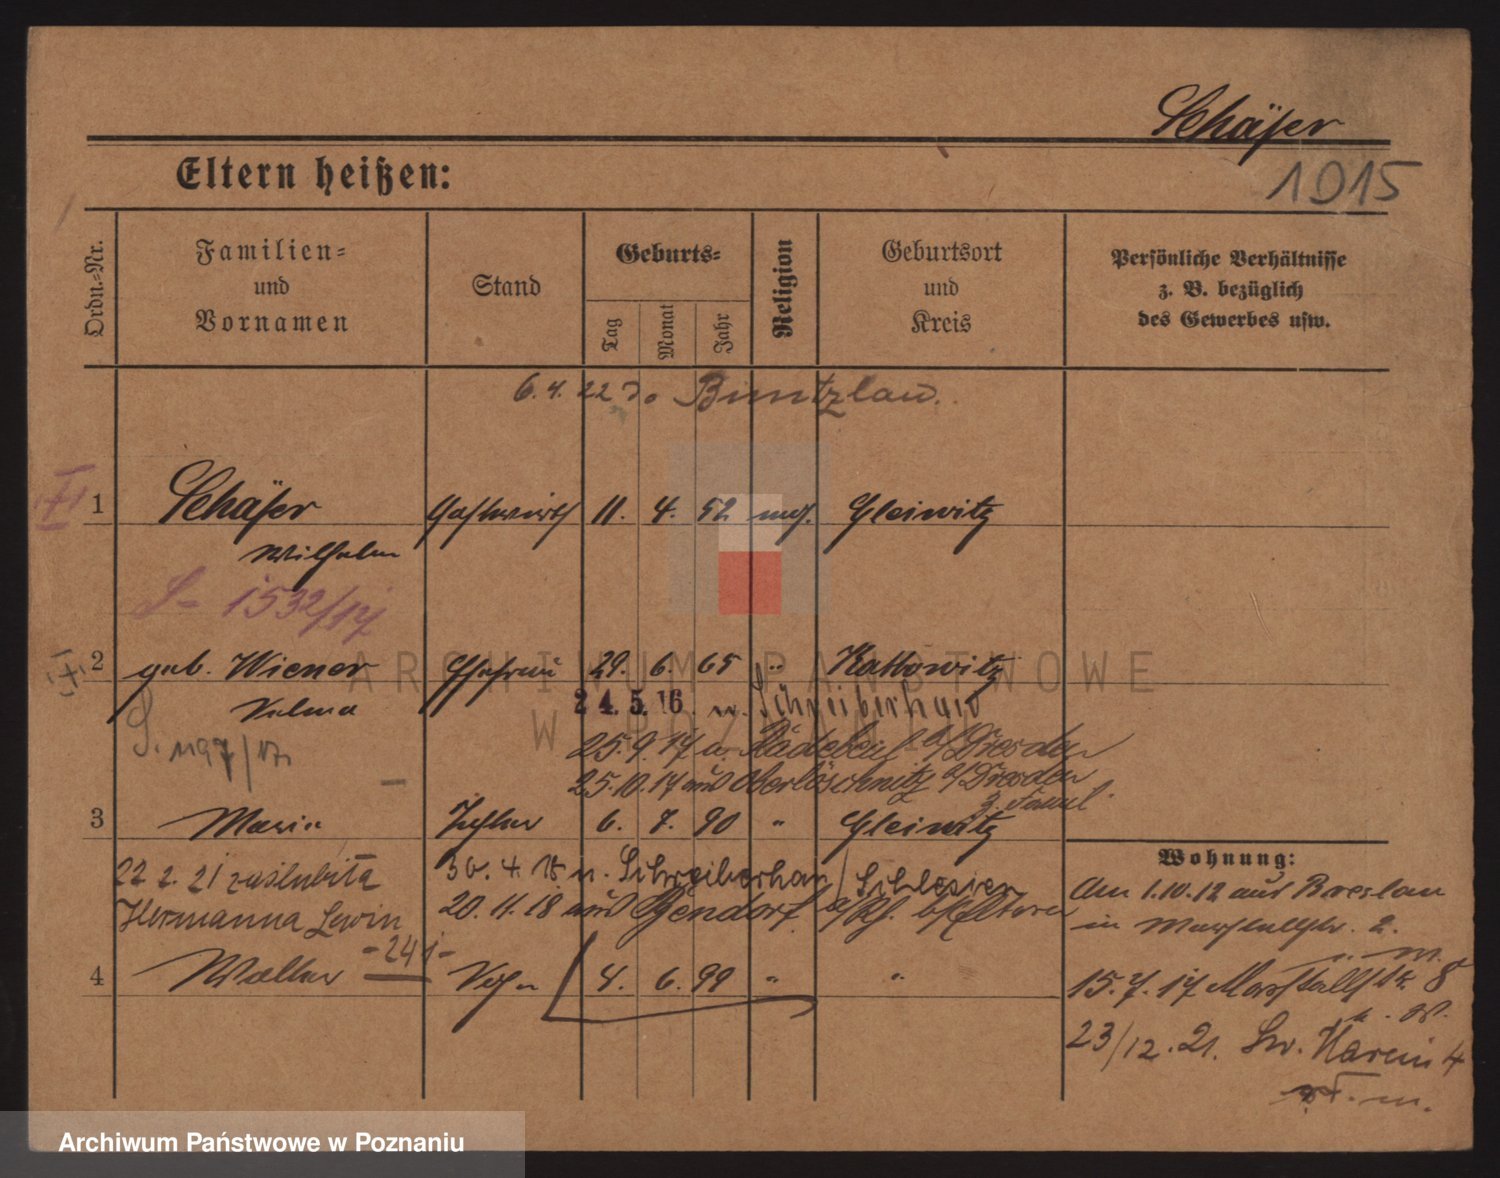 Schäfer
1015
Eltern heißen:
Ordn.-Nr.
Familien-
und
Vornamen
Stand
Geburts-
Tag
Monat
Jahr
Religion
Geburtsort
und
Kreis
Persönliche Verhältnisse
z. B. bezüglich
des Gewerbes usw.
6. 4. 22 Buntzlau.
1 Schäfer Gastwirth 11. 4. 52 Gleiwitz
Wilhelm
1532/17
2 geb. Wiener Ehefrau 29. 6. 65 " Kattowitz
24. 5. 16. n. Schreiberhau
S. 1197/17
25. 9. 17 a. Radebeul a/Dresden
25. 10. 17 aus Oberlöschnitz b/Dresden
z. Famil.
3 Maria Tochter 6. 7. 90 " Gleiwitz
22 2. 21 zaślubiła
Hermanna Lewin
- 24 j -
30. 4. 18 n. Schreiberhau / Schlesien
20. 11. 18 aus
4 Walter Sohn 4. 6. 99 " "
Wohnung:
Am 1.10.12 aus Breslau
in Marstallstr. 2.
15. 7. 17 Marstallstr. 8
23/12. 21. Św. Marcin 4
ARCHIWUM PAŃSTWOWE
W POZNANIU
Archiwum Państwowe w Poznaniu